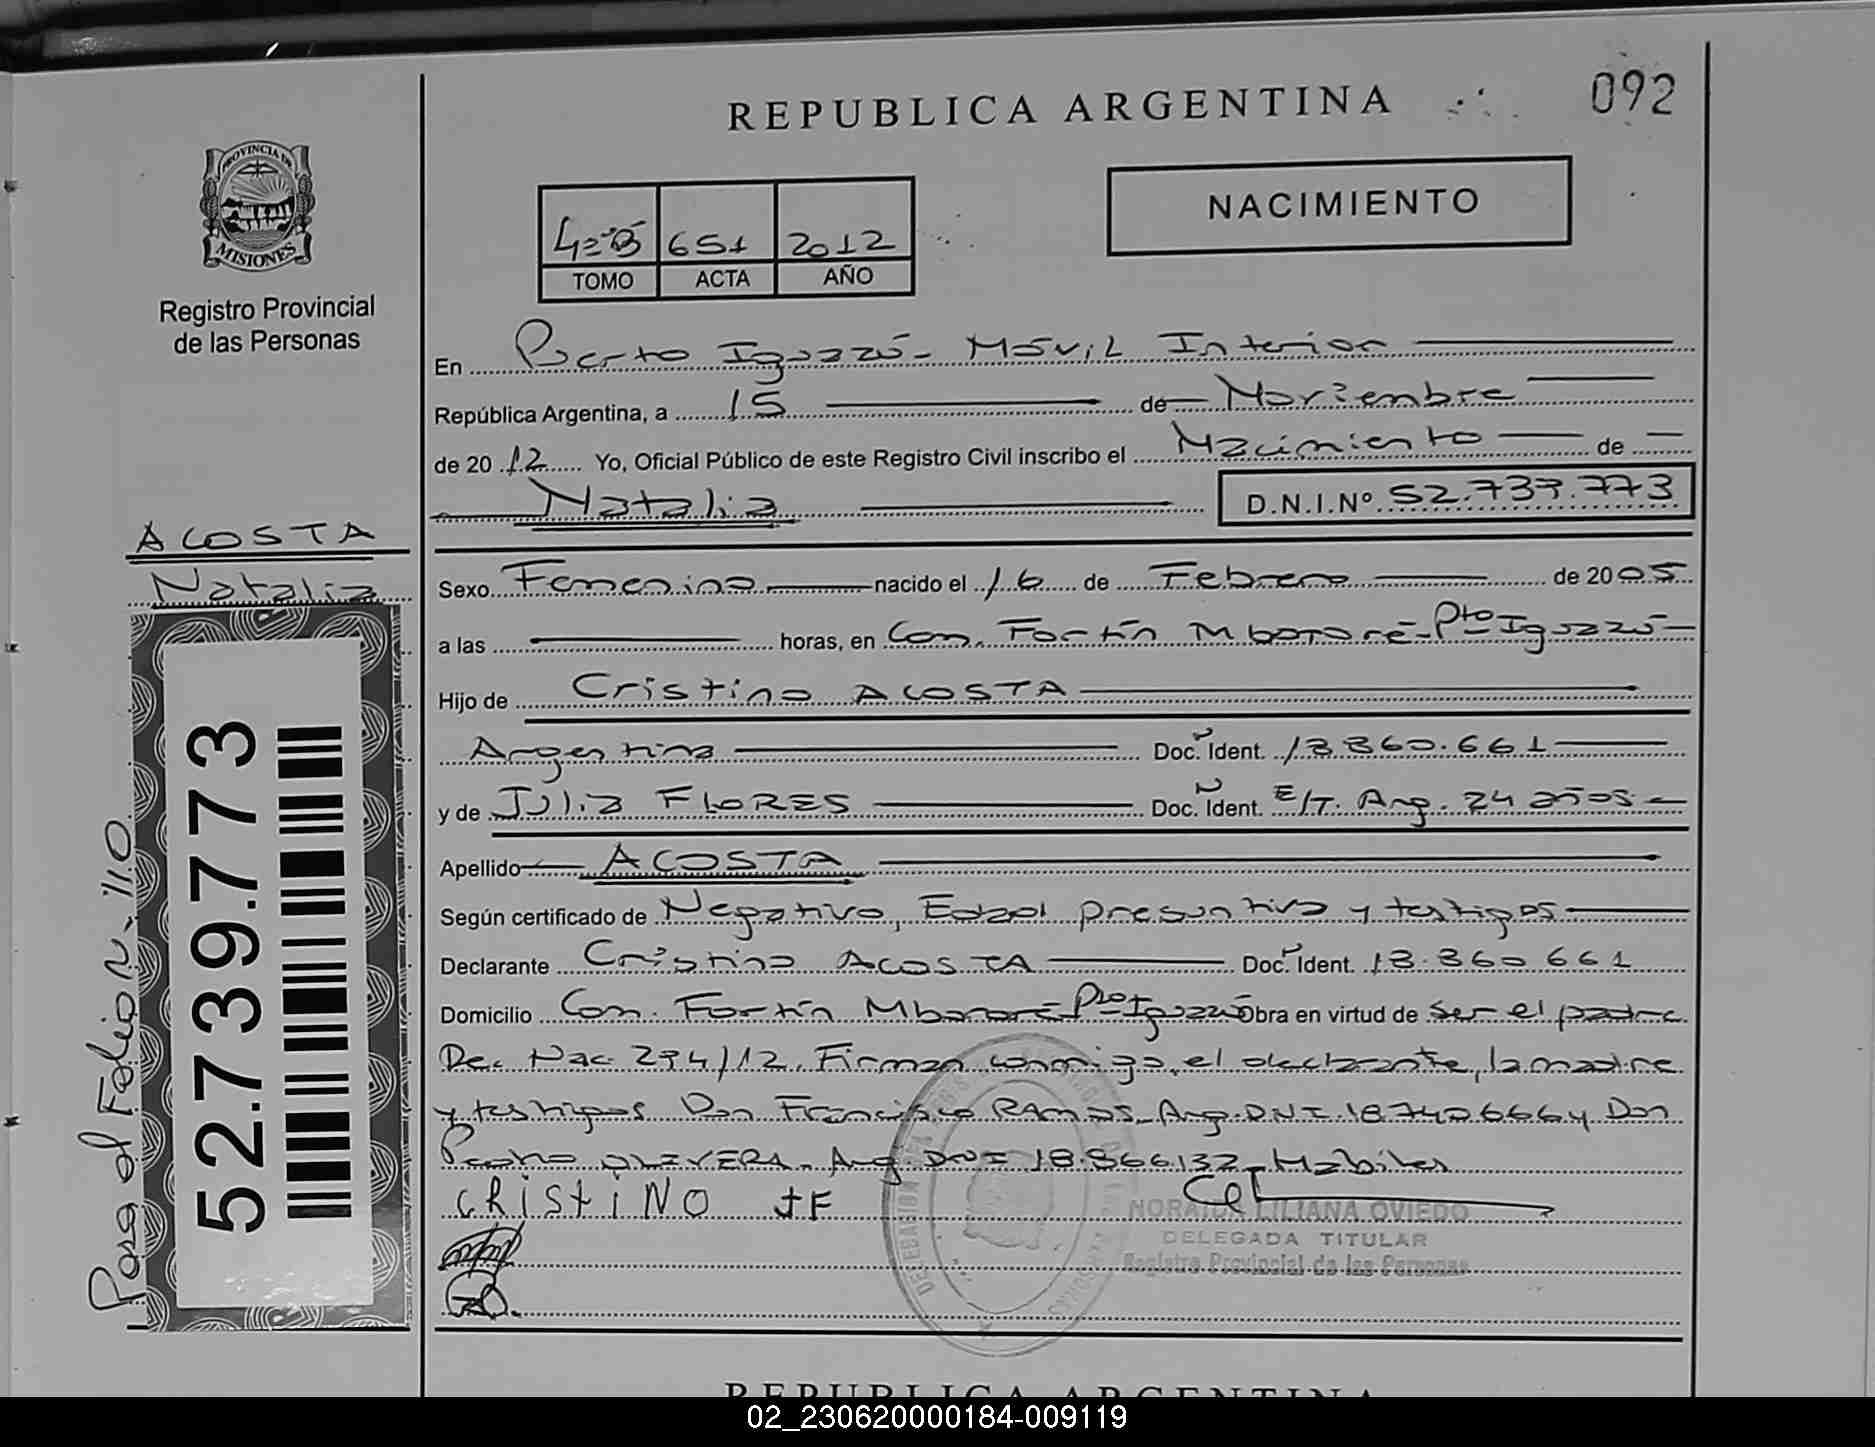 REPUBLICA ARGENTINA
092
PROVINCIA DE
MISIONES
Registro Provincial
de las Personas
NACIMIENTO
4=B 651 2012
TOMO ACTA AÑO
En Puerto Iguazú - Móvil Interior
República Argentina, a 15 de Noviembre
de 2012 Yo, Oficial Público de este Registro Civil inscribo el Nacimiento de
Natalia D.N.I.Nº 52.739.773
ACOSTA
Natalia
Sexo Femenino nacido el 16 de Febrero de 2005
a las horas, en Com. Fortín Mbororé - Pto Iguazú
Hijo de Cristino ACOSTA
Argentino Doc. Ident. 13.860.661
y de Julia FLORES Doc. Ident. E/T. Arg. 24 años
Apellido ACOSTA
Según certificado de Negativo, Edad presuntiva y testigos
Declarante Cristino ACOSTA Doc. Ident. 13.860.661
Domicilio Com. Fortín Mbororé - Pto Iguazú Obra en virtud de ser el padre
Dec. Nac. 294/12. Firman conmigo, el declarante, la madre
y testigos Don Francisco RAMOS - Arg. DNI 18.740.666 y Don
Pedro OLIVERA. Arg. DNI 18.866.132 - Hábiles
CRiStiNO JF
NORAIDA LILIANA OVIEDO
DELEGADA TITULAR
Registro Provincial de las Personas
52.739.773
Pasa al Folio Nº 110
REPUBLICA ARGENTINA
02_230620000184-009119